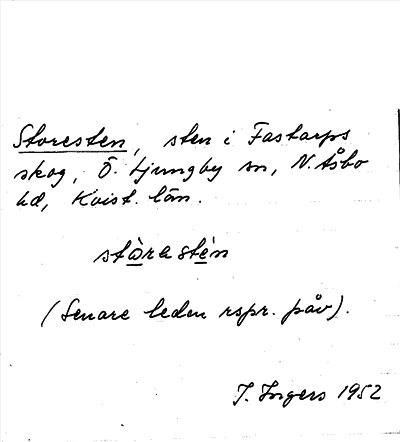 Storesten, sten i Fastarps
skog, Ö. Ljungby sn, N. Åsbo
hd, Krist. län.
stòrestén
(Senare leden rspr. påv).
I. Ingers 1952